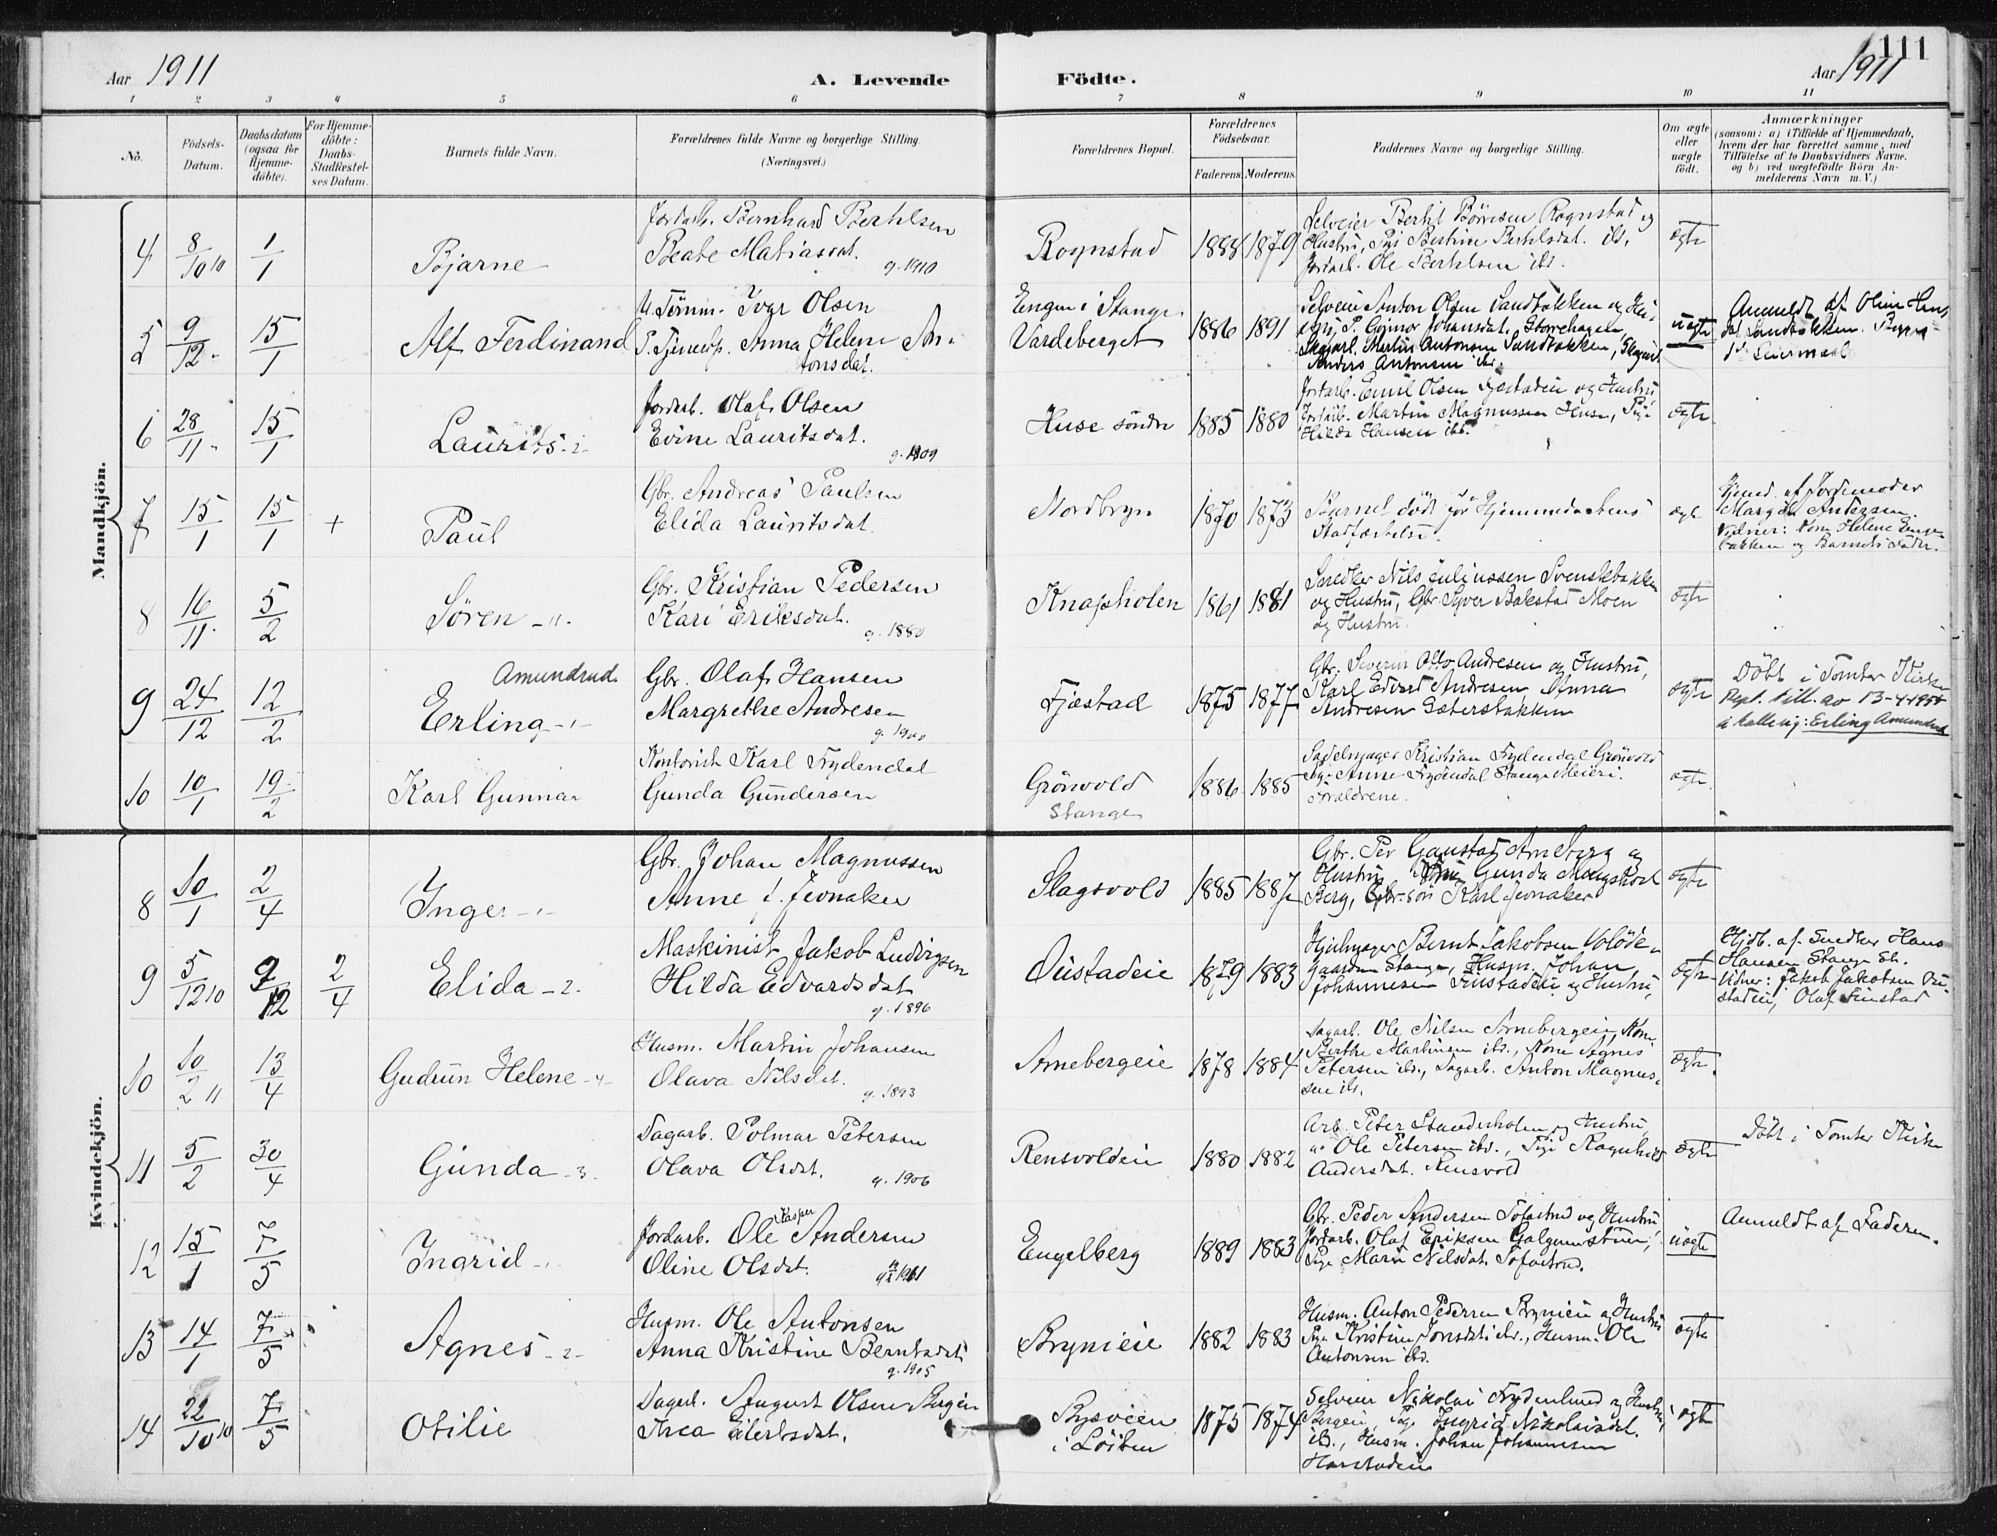 111
Aar 1911
A. Levende Födte.
Aar 1911
1 2 3 4 5 6 7 8 9 10 11
No.
Födsels-Datum.
Daabsdatum (ogsaa för Hjemme-döbte).
For Hjemme-döbte: Daabs-Stadfæstel-ses Datum.
Barnets fulde Navn.
Forældrenes fulde Navne og borgerlige Stilling. (Næringsvei.)
Forældrenes Bopæl.
Forældrenes Födselsaar.
Faderens. Moderens.
Faddernes Navne og borgerlige Stilling.
Om ægte eller uægte födt.
Anmærkninger
(saasom: a) i Tilfælde af Hjemmedaab,
hvem der har forrettet samme, med
Tilföielse af to Daabsvidners Navne,
og b) ved uægtefödte Börn An-
melderens Navn m. V.)
Mandkjön.
4 8/10 10 1/1 Bjarne
Jordarb. Bernhard Berthelsen
Beate Matiasdat. g. 1910
Rognstad 1888 1879
Selveier Bertil Börresen Rognstad og
Hustru, Pige Bertine Bertelsdat. ibd.
Jordarb. Ole Berthelsen ibd.
ægte
5 9/12 15/1 Alf Ferdinand
U. Tömm. Ivar Olsen
P. Tjenesp. Anna Helene An-
tonsdat.
Engen i Stange
Vardeberget 1886 1891
Selveier Anton Olsen Sandbakken og Hu-
Skogarb. Martin Antonsen Sandbakken, Skogarb.
Anders Antonsen ibd.
uægte
Anmeldt af Oline Hans
dat. Sandbakken.
6 28/11 15/1 Laurits -2-
Jordarb. Olaf Olsen
Evine Lauritsdat. g. 1909
Huse söndre 1885 1880
Jordarb. Emil Olsen Fjæstadeie og Hustru
Jordarb. Martin Magnussen Huse, Pige
Hilda Hansen ibd.
ægte
7 15/1 15/1 + Paul
Gbr. Andreas Paulsen
Elida Lauritsdat.
Nordbryn 1870 1873
Barnet död för Hjemmedaabens
Stadfæstelse.
ægte
Hjemd. af Jordemoder
Margthe Andersen.
Vidner: Kone Helene Enge-
bakken og Barnets Fader.
8 16/11 5/2 Sören -11-
Gbr. Kristian Pedersen
Kari Eriksdat. g. 1880
Knapholen 1861 1881
Snedker Nils Juliussen Svenskebakken
og Hustru, Gbr. Syver Bakstad Moen
og Hustru.
ægte
9 24/12 12/2 Amundrud.
Erling -1-
Gbr. Olaf Hansen
Margrethe Andresen g. 1900
Fjæstad 1875 1877
Gbr. Severin Otto Andresen og Hustru,
Karl Edvard Andresen Anna
Andresen Sæterbakken
ægte
Döbt i Tomter Kirke
Dept. till. av 13-4-1954
å kalle sig: Erling Amundrud
10 10/1 19/2 Karl Gunnar
Kontorist Karl Frydendal
Gunda Gundersen
Grönvold
Stange 1886 1885
Sadelmager Kristian Frydendal Grönvold
Anne Frydendal Stange Meieri.
Forældrene.
ægte
Kvindekjön.
8 10/1 2/4 Inger -1-
Gbr. Johan Magnussen
Anne f. Jevnaker
Slagsvold 1885 1887
Gbr. Per Gaustad Arneberg og
Hustru Gunda Mangskot
Berg, Gbr. sön Karl Jevnaker
ægte
9 5/12 10 9/12 2/4 Elida -2-
Maskinist Jakob Ludvigsen
Hilda Edvardsdat g. 1896
Oustadeie 1879 1883
Hjulmager Bernt Jakobsen Volöde-
gaarden Stange, Husm. Johan
Johannesen Finstadeie og Hustru,
ægte
Hjdb. af Snedker Hans
Hansen Stange St.
Vidner: Jakob Jakobsen Ou-
stadeie, Olaf Finstad
10 10/2 11 13/4 Gudrun Helene -4-
Husm. Martin Johansen
Olava Nilsdat. g. 1893
Arnebergeie 1878 1884
Dagarb. Ole Nilsen Arnebergeie, Kone
Berthe Martinsen ibd., Kone Agnes
Petersen ibd., Dagarb. Anton Magnus-
sen ibd.
ægte
11 5/2 30/4 Gunda -3-
Dagarb. Polmar Petersen
Olava Olsdat. g. 1906
Rensvoldeie 1880 1882
Arb. Peter Standerholen og Hustru,
Ole Petersen ibd., Pige Ragnhild
Andersdat. Rensvold
ægte
Döbt i Tomter Kirke
12 15/1 7/5 Ingrid -1-
Jordarb. Ole Kasper Andersen
Oline Olsdat. 1911
Engelberg 1889 1883
Gbr. Peder Andersen Tofastrud og Hustru
Jordarb. Olaf Eriksen Galgumstuen,
Pige Marie Nilsdat. Tofastrud.
uægte
Anmeldt af Faderen.
13 14/1 7/5 Agnes -2-
Husm. Ole Antonsen
Anna Kristine Berntsdat. g. 1905
Brynieie 1882 1883
Husm. Anton Pedersen Brynieie og Hustru
Pige Kristine Jonsdat. ibd., Husm. Ole
Antonsen ibd.
ægte
14 22/10 10 7/5 Otilie
Dagarb. August Olsen Bergeie
Thea Eilertsdat.
Bysveien
i Löiten 1875 1874
Selveier Nikolai Frydenlund og Hustru,
Bergeie, Pige Ingrid Nikolaisdat.
ibd., Husm. Johan Johannesen
Harstadeie
ægte